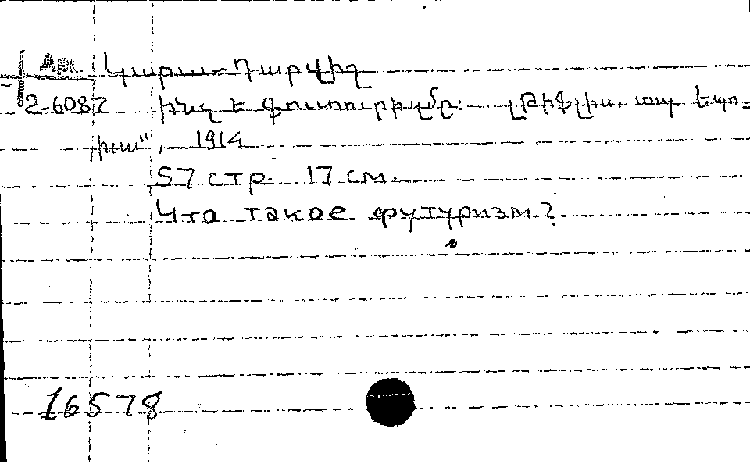 Арм. Կարա-Դարվիշ
2-6087 Ինչ է ֆուտուրիզմը: Թիֆլիս, տպ. Էպո-
խա", 1914
57 стр. 17 см.
Что такое футуризм?
16578